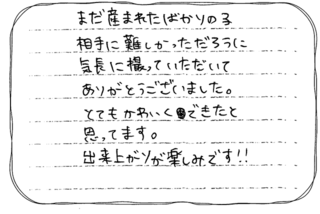 まだ産まれたばかりの子
相手に難しかっただろうに
気長に撮っていただいて
ありがとうございました。
とてもかわいくできたと
思ってます。
出来上がりが楽しみです!!